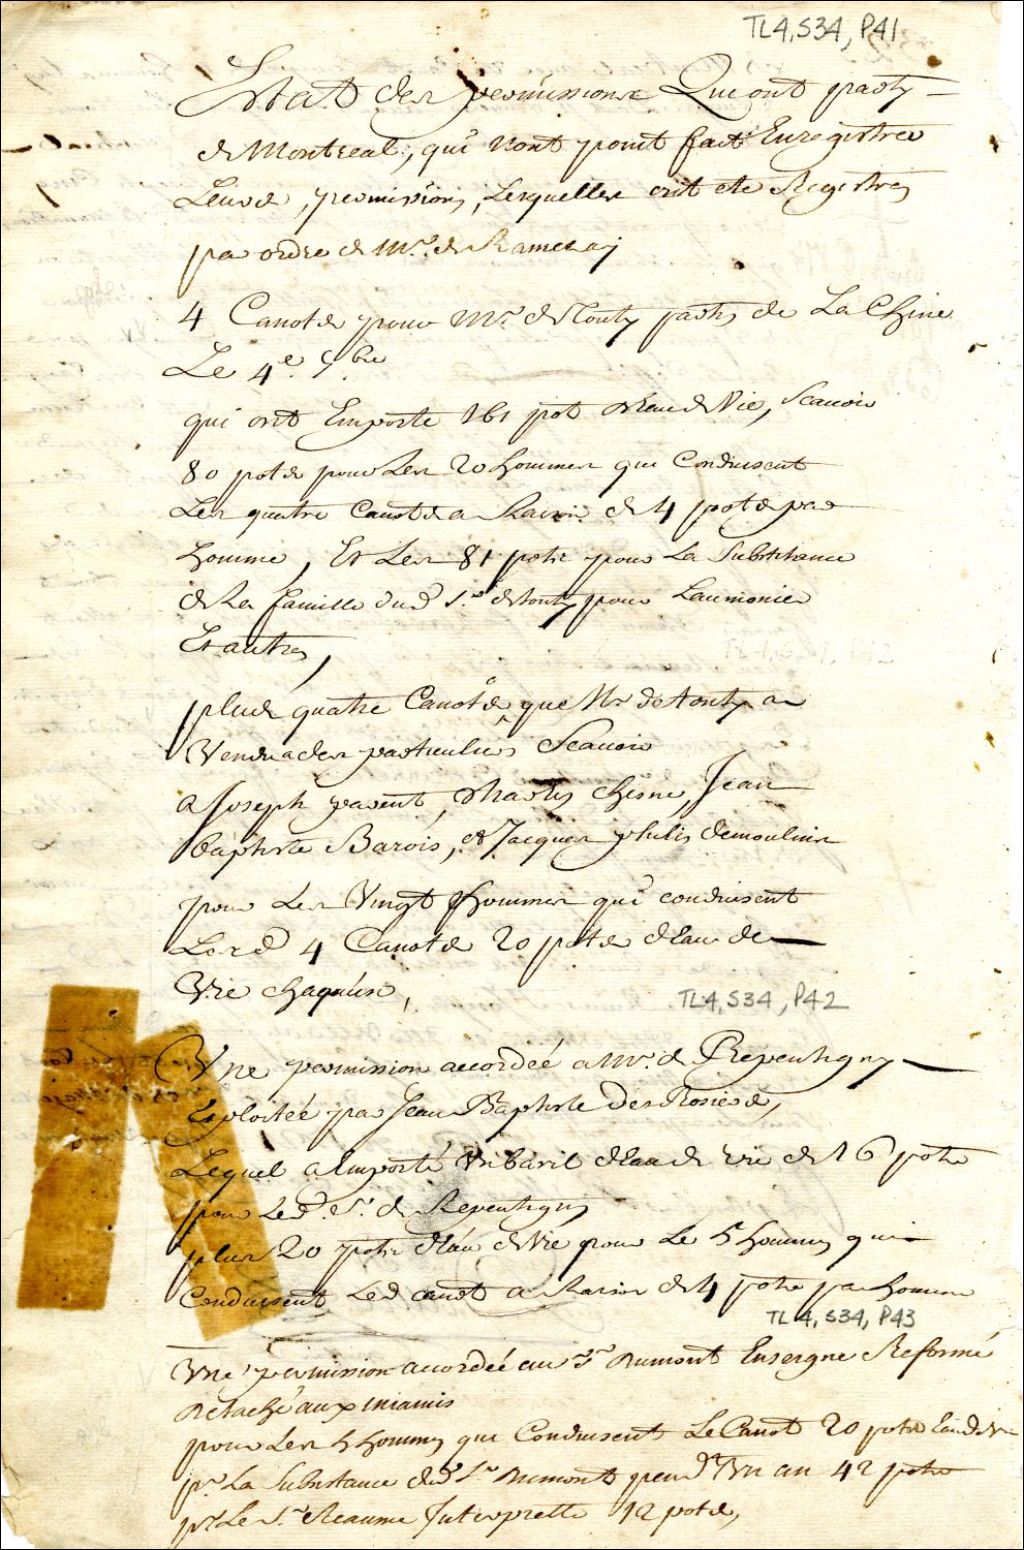 TL4, S34, P41
Estat des permissions Qui ont party
de Montreal, qui n'ont point fait Enregistrer
Leurs permissions, Lesquelles ont ete Registrés
par ordre de Mr. de Ramezay
4 Canots pour Mr. de Tonty partis de La Chine
Le 4e. 7bre
qui ont Emporté 161 pot d'Eau de Vie, Scavoir
80 pots pour Les 20 hommes qui Conduisent
Les quatre Canots a Raison de 4 pots par
homme, Et Les 81 pots pour La Subsistance
de La famille dud. Sr. de Tonty pour Laumonier
Et autres,
plus quatre Canots que Mr de Tonty a
Vendu a des particuliers Scavoir
a Joseph parent, Charles Chesne, Jean
baptiste Barois, et Jacques philis demoulins
pour Les Vingt hommes qui conduisent
Lesd. 4 Canots 20 pots d'eau de
Vie chaquùn,
TL4, S34, P42
Vne permission accordéé a Mr. de Repentigny
Exploitéé par Jean Baptiste Des Rosiers,
Lequel a Emporté Un baril d'Eau de vie de 16 pots
pour Led. Sr. de Repentigny
plus 20 pots d'Eau de Vie pour Le 5 hommes qui
Conduisent Led canot a Raison de 4 pots par homme
TL4, S34, P43
Vne permission accordéé au Sr. Dumont Enseigne Reformé
Detaché aux miamis
pour Les 5 hommes qui Conduisent Le Canot 20 pots Eau de Vie
pr. La Subsistance dud Sr. Dumont pendt. Vn an 42 pots
pr. Le Sr. Reaume Interprette 12 pots,